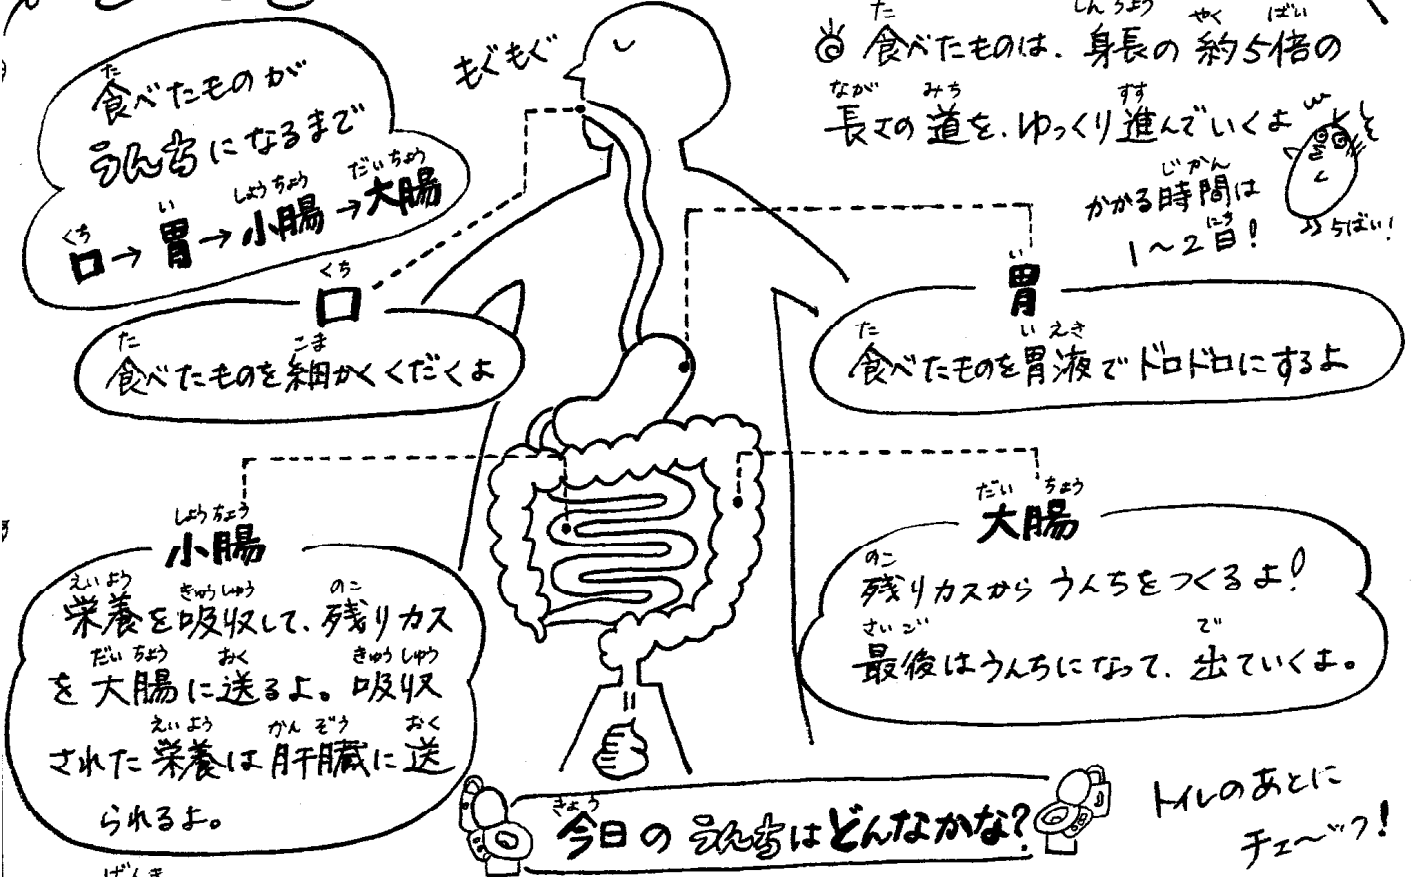 食べたものが
うんちになるまで
口→胃→小腸→大腸
もぐもぐ
食べたものは、身長の約5倍の
長さの道を、ゆっくり進んでいくよ
かかる時間は
1〜2日!
5ばい!
口
食べたものを細かくくだくよ
胃
食べたものを胃液でドロドロにするよ
小腸
栄養を吸収して、残りカス
を大腸に送るよ。吸収
された栄養は肝臓に送
られるよ。
大腸
残りカスからうんちをつくるよ!
最後はうんちになって、出ていくよ。
今日のうんちはどんなかな?
トイレのあとに
チェ〜ック!